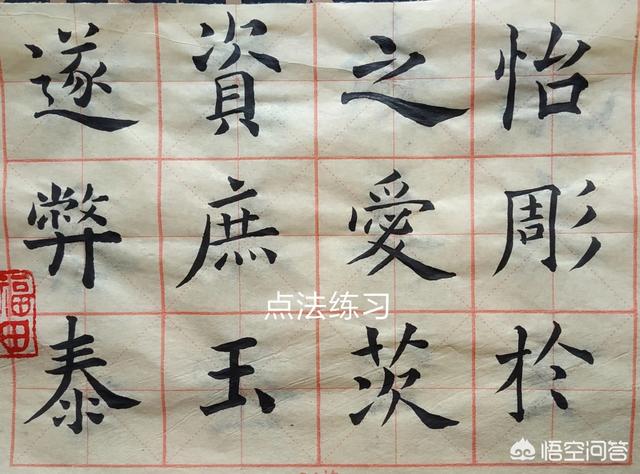 怡彫於
之愛茨
資庶玉
遂弊泰
点法练习
福田
悟空问答